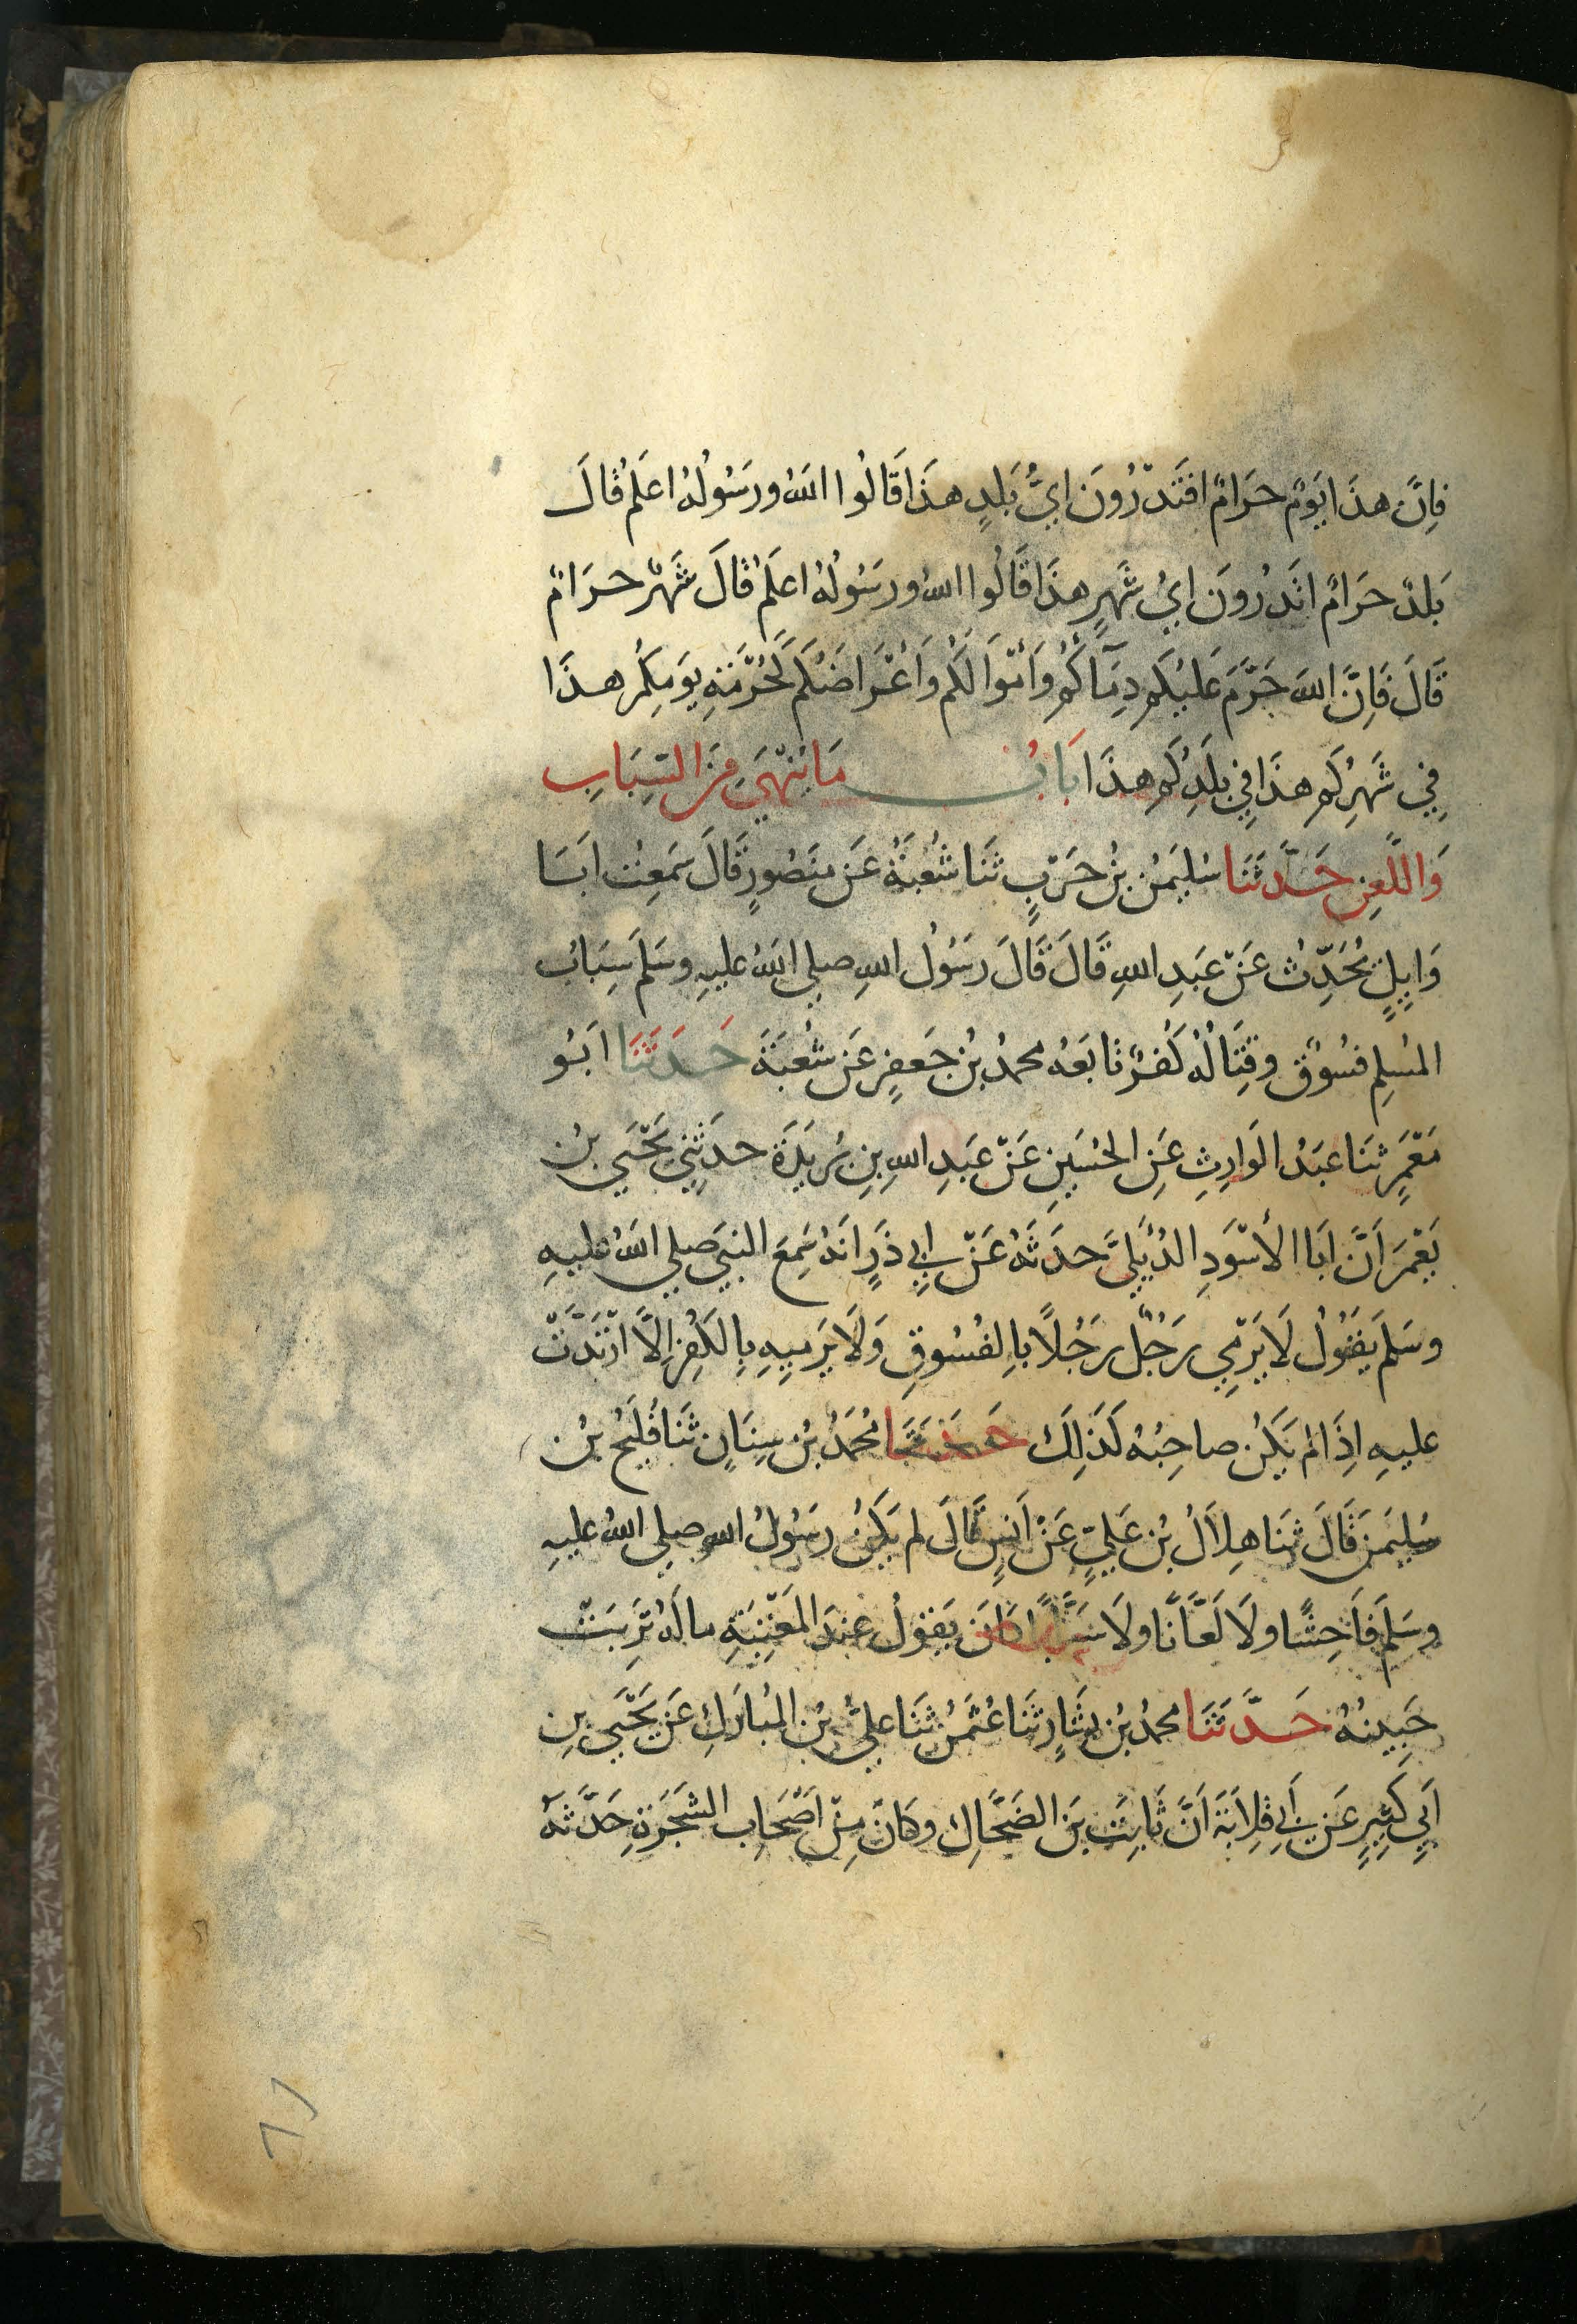 فَاِنَّ هذَا يَوْمٌ حَرَامٌ افَتَدْرُونَ ايُّ بَلَدٍ هذَا قَالُوا اللهُ ورَسُولُهُ اعلَمُ قَالَ
بَلَدٌ حَرَامٌ اتَدْرُونَ ايُ شَهرٍ هذَا قَالُوا اللهُ ورَسُولُهُ اعلَمُ قَالَ شَهْرٌ حرَامٌ
قَالَ فَاِنَّ اللهَ حَرَّمَ عَلَيْكم دِمَآكُمْ وَأمْوَالَكُم وَأعْرَاضَكُم كَحُرْمَةِ يَومِكُم هذَا
فِي شَهرِكُم هذَا فِي بَلَدِكُم هذَا بَابُ مَا يُنْهَي مِنَ السِّبَابِ
وَاللَّعنِ حَدَّثَنَا سُلَيمَنُ بنُ حَرْبٍ ثنَا شُعْبَةُ عَن مَنصُورٍ قَالَ سَمِعتُ ابَا
وَايِلٍ يُحَدِّثُ عَنْ عَبدِ اللهِ قَالَ قَالَ رَسُولُ اللهِ صلي اللهُ عليهِ وسَلمَ سِبَابُ
المُسلِمِ فسُوقٌ وقِتَالُهُ كُفرٌ تابَعَهُ محمدُ بنُ جَعفرٍ عَن شُعبَةَ حَدَثَنَا ابُو
مَعْمَرٍ ثنَا عبدُ الوَارِثِ عَنِ الحُسَينِ عَنْ عَبدِ اللهِ بنِ بُرَيدَةَ حدَثَنِي يَحْيَي بنُ
يَعْمَرَ اَنَّ ابَا الأسْوَدِ الدُئَلِيَّ حدَثَهُ عَنْ ابِي ذَرٍ انَهُ سَمِعَ النبيَ صلي اللهُ عليهِ
وسَلمَ يقُولُ لَا يَرْمِي رَجُلٌ رَجُلًا بِالفُسُوقِ وَلَا يَرمِيهِ بِالكُفرِ الَّا ارْتَدَّتْ
عليهِ اِذَا لم يَكُن صاحِبُهُ كَذَلِكَ حَدَثَنَا مُحَمدُ بنُ سِنَانٍ ثنَا فُلَيحُ بنُ
سُلَيمَنَ قَالَ ثنَا هِلَالُ بنُ عَليٍّ عَنْ اَنسٍ قَالَ لم يَكُنْ رسُولُ اللهِ صلي اللهُ عليهِ
وسَلمَ فَاحِشًا ولَا لَعَّانًا ولَا سَبَّابًا كَانَ يَقولُ عِندَ المَعْتِبَةِ مالَهُ تَرِبَتْ
جَبِينُهُ حَدَّثَنَا محمدُ بنُ بشَارٍ ثنَا عُثْمَنُ ثنَا عليُّ بنُ المُبَارَكِ عَن يَحْيَي بنِ
اَبي كَثِيرٍ عَن ابِي قِلَابَةَ اَنَّ ثَابِتَ بنَ الضَحَّاكِ وكَانَ مِنْ اصْحَابِ الشجَرَةِ حَدَّثَهُ